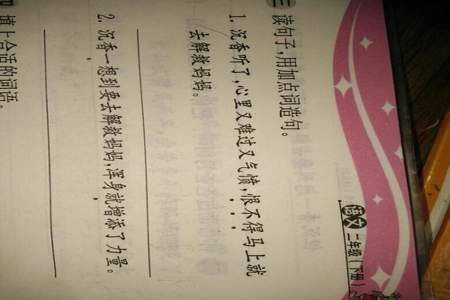 语文 二年级（下册）
三 读句子，用加点词造句。
1. 沉香听了，心里又难过又气愤，恨不得马上就
去解救妈妈。
2. 沉香一想到要去解救妈妈，浑身就增添了力量。
四 填上合适的词语。